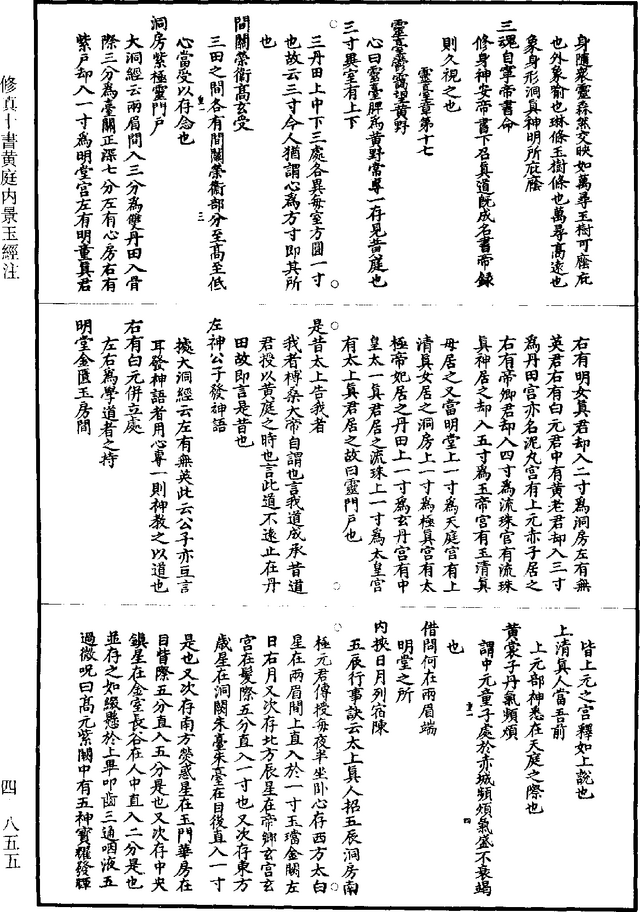 身隨衆靈森然交映如萬尋玉樹可廕庇
也外象喻也琳條玉樹條也萬尋高遠也
象身形洞真神明所庇廕
三魂自寧帝書命
修身神安帝書下召真道既成名書帝錄
則久視之也
靈臺章第十七
靈臺鬱藹望黃野
心曰靈臺脾為黃野常專一存見黃庭也
三寸異室有上下
三丹田上中下三處各異每室方圓一寸
也故云三寸今人猶謂心為方寸即其所
也
間關榮衛高玄受
三田之間各有間關榮衛部分至高至低
心當受以存念也
洞房紫極靈門戶
大洞經云兩眉間入三分為雙丹田入骨
際三分為臺闕正深七分左有心房右有
紫戶却入一寸為明堂宮左有明童真君
右有明女真君却入二寸為洞房左有無
英君右有白元君中有黃老君却入三寸
為丹田宮亦名泥丸宮有上元赤子居之
右有帝卿君却入四寸為流珠宮有流珠
真神居之却入五寸為玉帝宮有玉清真
母居之又當明堂上一寸為天庭宮有上
清真女居之洞房上一寸為極真宮有太
極帝妃居之丹田上一寸為玄丹宮有中
皇太一真君居之流珠上一寸為太皇宮
有太上真君居之故曰靈門戶也
是昔太上告我者
我者榑桑大帝自謂也言我道成承昔道
君授以黃庭之時也言此道不遠止在丹
田故即言是昔也
左神公子發神語
據大洞經云左有無英此云公子亦互言
耳發神語者用心專一則神教之以道也
右有白元併立處
左右為學道者之持
明堂金匱玉房間
皆上元之宮釋如上說也
上清真人當吾前
上元部神悉在天庭之際也
黃裳子丹氣頻煩
謂中元童子處於赤城頻煩氣盛不衰竭
也
借問何在兩眉端
明堂之所
內挾日月列宿陳
五辰行事訣云太上真人招五辰洞房南
極元君傳授每夜半坐臥心存西方太白
星在兩眉間上直入於一寸玉璫金闕左
日右月又次存北方辰星在帝卿玄宮玄
宮在髮際五分直入一寸也又次存東方
歲星在洞闕朱臺朱臺在目後直入一寸
是也又次存南方熒惑星在玉門華房在
目眥際五分直入五分是也又次存中央
鎮星在金室長谷在人中直入二分是也
並存之如綴懸於上畢叩齒三通嚥液五
過微呪曰高元紫闕中有五神寶耀發輝
修真十書黃庭內景玉經注
四 八五五